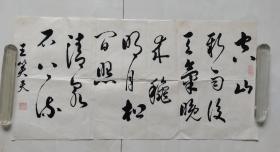 空山
新雨後
天氣晚
来秋
明月松
间照
清泉
石上流
王笑天